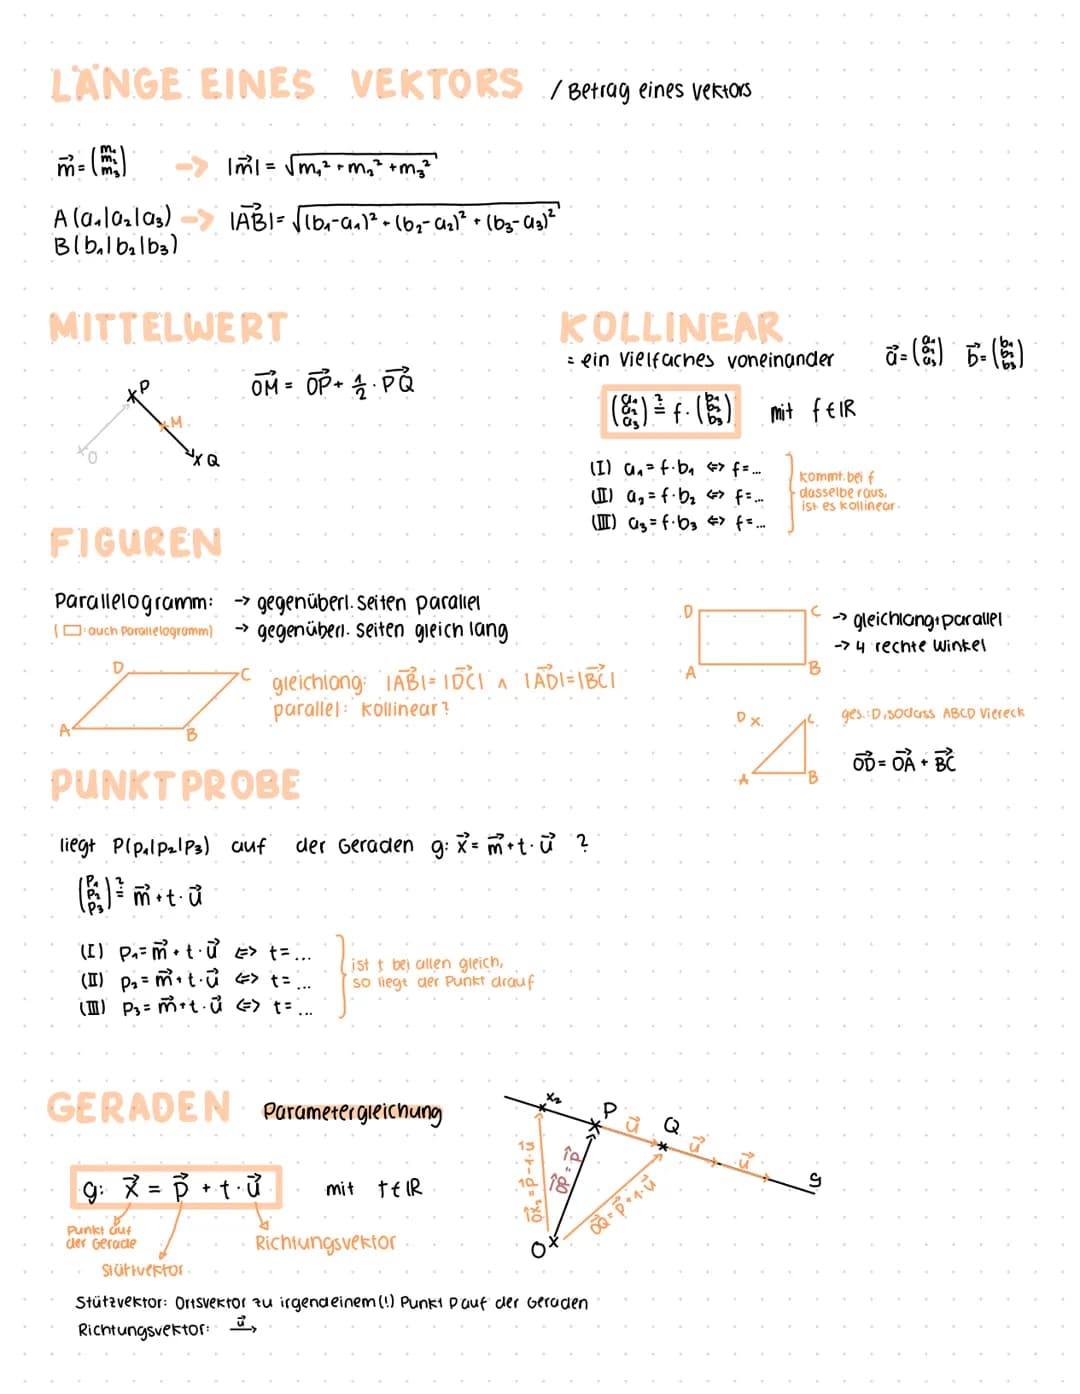 LÄNGE EINES VEKTORS / Betrag eines Vektors
m⃗ = (m₁ m₂ m₃) → |m⃗| = √(m₁² + m₂² + m₃²)
A(a₁|a₂|a₃) → |AB⃗| = √((b₁-a₁)² + (b₂-a₂)² + (b₃-a₃)²)
B(b₁|b₂|b₃)
MITTELWERT
OM⃗ = OP⃗ + 1/2 · PQ⃗
P
M
O
Q
KOLLINEAR
= ein Vielfaches voneinander a⃗ = (a₁ a₂ a₃) b⃗ = (b₁ b₂ b₃)
(a₁ a₂ a₃) ≟ f · (b₁ b₂ b₃) mit f ∈ ℝ
(I) a₁ = f · b₁ ⇔ f = ...
(II) a₂ = f · b₂ ⇔ f = ...
(III) a₃ = f · b₃ ⇔ f = ...
kommt bei f
dasselbe raus,
ist es kollinear
FIGUREN
Parallelogramm: → gegenüberl. Seiten parallel
(▭ auch Parallelogramm) → gegenüberl. Seiten gleich lang
D
C
A
B
gleichlang: |AB⃗| = |DC⃗| ∧ |AD⃗| = |BC⃗|
parallel: kollinear?
D
C
A
B
→ gleichlang+parallel
→ 4 rechte Winkel
D x
C
A
B
ges.: D, sodass ABCD Viereck
OD⃗ = OA⃗ + BC⃗
PUNKTPROBE
liegt P(p₁|p₂|p₃) auf der Geraden g: x⃗ = m⃗ + t · u⃗ ?
(p₁ p₂ p₃) ≟ m⃗ + t · u⃗
(I) p₁ = m⃗ + t · u⃗ ⇔ t = ...
(II) p₂ = m⃗ + t · u⃗ ⇔ t = ...
(III) p₃ = m⃗ + t · u⃗ ⇔ t = ...
ist t bei allen gleich,
so liegt der Punkt drauf
GERADEN Parametergleichung
g: x⃗ = p⃗ + t · u⃗ mit t ∈ ℝ
Punkt auf
der Gerade
Stützvektor
Richtungsvektor
x₂
P
u⃗
Q
u⃗
u⃗
g
OX₂⃗ = p⃗ - 1 · u⃗
OP⃗ = p⃗
OQ⃗ = p⃗ + 1 · u⃗
O
Stützvektor: Ortsvektor zu irgendeinem (!) Punkt P auf der Geraden
Richtungsvektor: u⃗